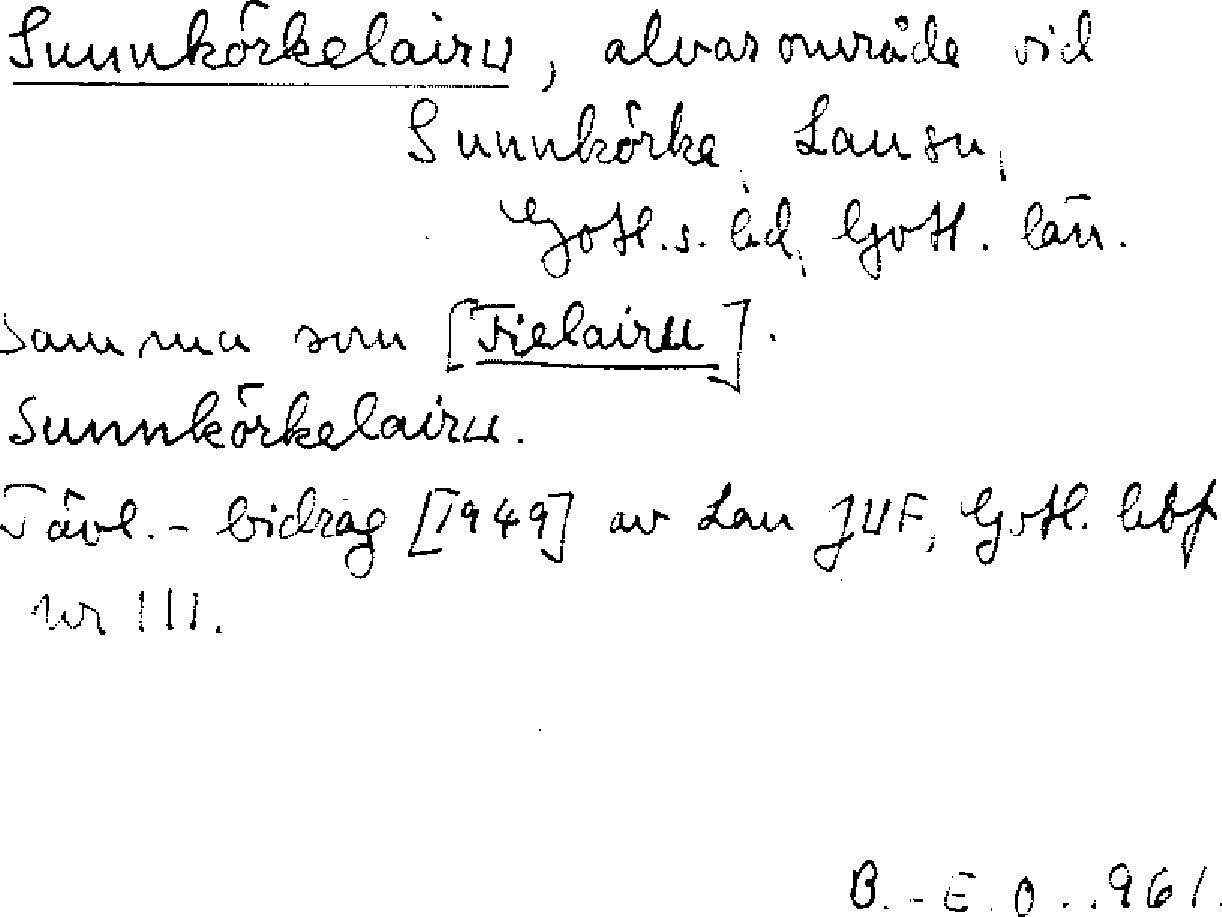 Sunnkörkelairu, alvarområde vid
Sunnkörke, Lau sn,
Gotl. s. hd, Gotl. län.
Samma som [Fielairu].
Sunnkörkelairu.
Tävl.-bidrag [1949] av Lau JUF, Gotl. hbf
nr 111.
B.-E. O. .961.